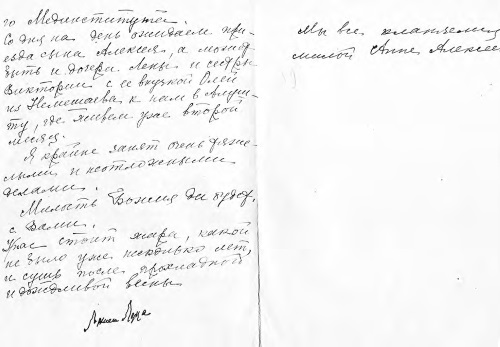 го Мединститута.
Со дня на день ожидаем при-
езда сына Алексея, а может
быть и дочери Лены и сестры
Виктории с ее внучкой Олей
из Немешаева к нам в Алуш-
ту, где живем уже второй
месяц.
Я крайне занят очень тяже-
лыми и неотложными
делами.
Милость Божия да будет
с Вами.
У нас стоит жара, какой
не было уже несколько лет,
и сушь после прохладной
и дождливой весны
Архиеп Лука
Мы все кланяемся
милой Анне Алексе